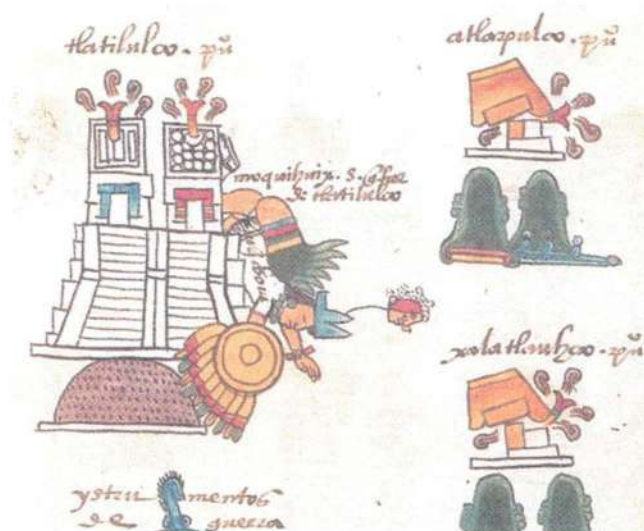 tlatilulco. pūo
atlapulco. pūo
moquihuix. s. señor
de tlatilulco
xalatlauhco. pūo
ystrumentos
de guerra